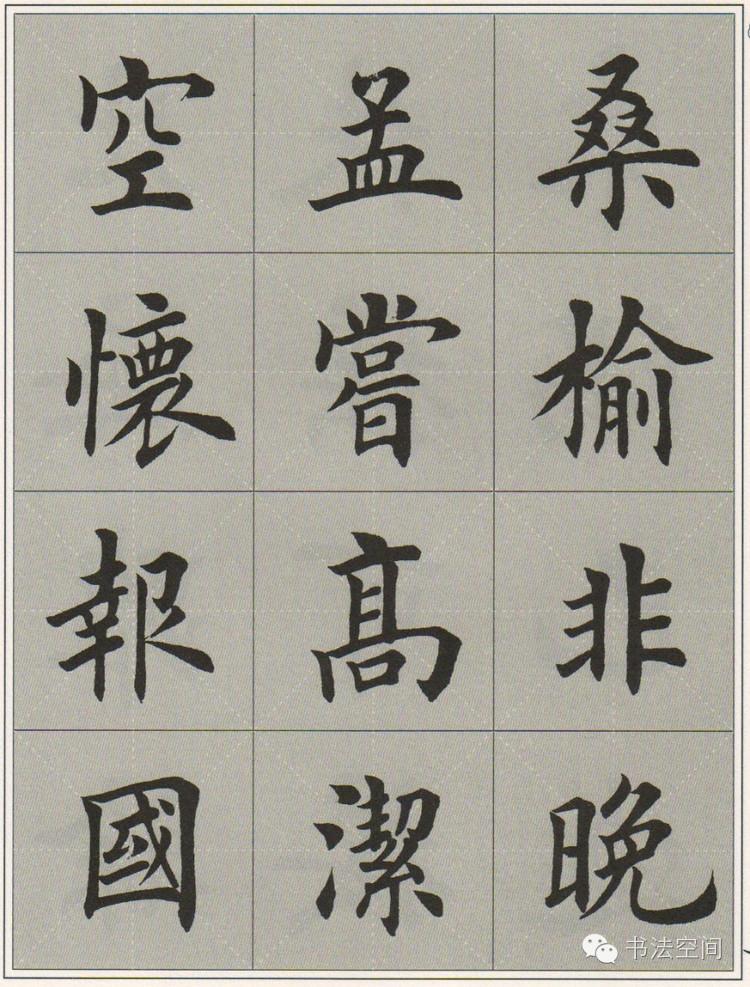 桑榆非晚
孟嘗高潔
空懷報國
书法空间